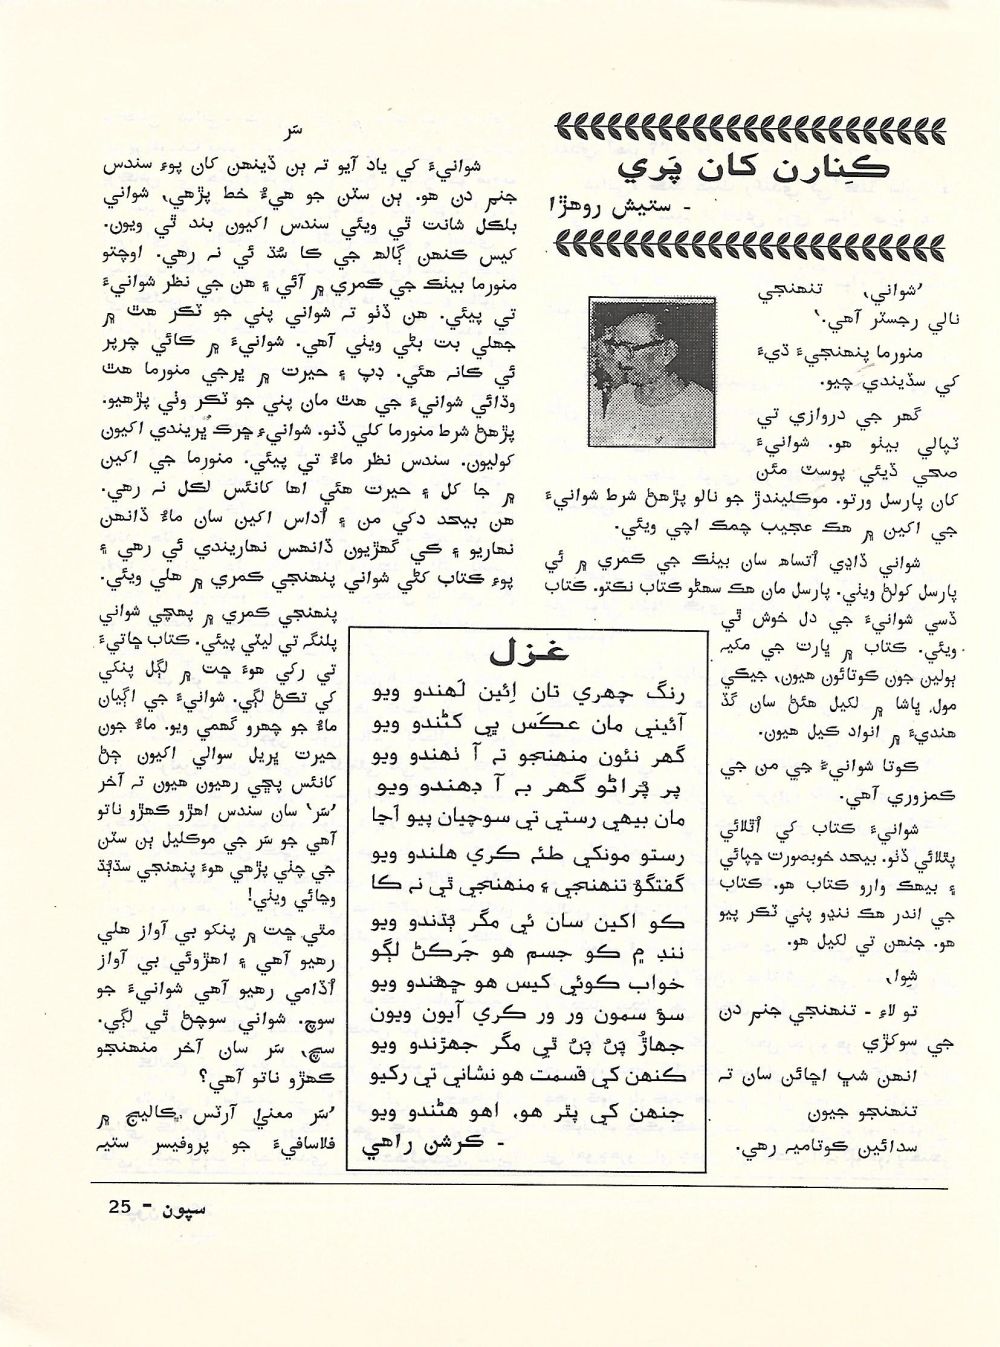 ڪِنارن کان پَري
- ستيش روهڙا
’شواني، تنهنجي
نالي رجسٽر آهي.‘
منورما پنهنجيءَ ڌيءَ
کي سڏيندي چيو.
گهر جي دروازي تي
ٽپالي بيٺو هو. شوانيءَ
صحي ڏيئي پوسٽ مئن
کان پارسل ورتو. موڪليندڙ جو نالو پڙهڻ شرط شوانيءَ
جي اکين ۾ هڪ عجيب چمڪ اچي ويئي.
شواني ڏاڍي اُتساهه سان بيٺڪ جي ڪمري ۾ ئي
پارسل کولڻ ويٺي. پارسل مان هڪ سهڻو ڪتاب نڪتو. ڪتاب
ڏسي شوانيءَ جي دل خوش ٿي
ويئي. ڪتاب ۾ ڀارت جي مکيه
ٻولين جون ڪوتائون هيون، جيڪي
مول ڀاشا ۾ لکيل هئڻ سان گڏ
هنديءَ ۾ انواد ڪيل هيون.
ڪوتا شوانيءَ جي من جي
ڪمزوري آهي.
شوانيءَ ڪتاب کي اُٿلائي
پٿلائي ڏٺو. بيحد خوبصورت ڇپائي
۽ بيهڪ وارو ڪتاب هو. ڪتاب
جي اندر هڪ ننڍو پني ٽڪر پيو
هو. جنهن تي لکيل هو.
شِوا،
تو لاءِ - تنهنجي جنم دن
جي سوکڙي
انهن شڀ اڇائن سان ته
تنهنجو جيون
سدائين ڪوتاميه رهي.
سَر
شوانيءَ کي ياد آيو ته ٻن ڏينهن کان پوءِ سندس
جنم دن هو. ٻن سٽن جو هيءُ خط پڙهي، شواني
بلڪل شانت ٿي ويئي سندس اکيون بند ٿي ويون.
کيس ڪنهن ڳالهه جي ڪا سُڌ ئي نه رهي. اوچتو
منورما بيٺڪ جي ڪمري ۾ آئي ۽ هن جي نظر شوانيءَ
تي پيئي. هن ڏٺو ته شواني پني جو ٽڪر هٿ ۾
جهلي بت بڻي ويٺي آهي. شوانيءَ ۾ ڪائي چرپر
ئي ڪانه هئي. ڊپ ۽ حيرت ۾ ڀرجي منورما هٿ
وڌائي شوانيءَ جي هٿ مان پني جو ٽڪر وٺي پڙهيو.
پڙهڻ شرط منورما کلي ڏنو. شوانيءَ ڇرڪ ڀريندي اکيون
کوليون. سندس نظر ماءُ تي پيئي. منورما جي اکين
۾ جا کل ۽ حيرت هئي اها کانئس لڪل نه رهي.
هن بيحد دکي من ۽ اُداس اکين سان ماءُ ڏانهن
نهاريو ۽ ڪي گهڙيون ڏانهس نهاريندي ئي رهي ۽
پوءِ ڪتاب کڻي شواني پنهنجي ڪمري ۾ هلي ويئي.
پنهنجي ڪمري ۾ پهچي شواني
پلنگ تي ليٽي پيئي. ڪتاب ڇاتيءَ
تي رکي هوءَ ڇت ۾ لڳل پنکي
کي تڪڻ لڳي. شوانيءَ جي اڳيان
ماءُ جو چهرو گهمي ويو. ماءُ جون
حيرت ڀريل سوالي اکيون ڄڻ
کانئس پڇي رهيون هيون ته آخر
’سَر‘ سان سندس اهڙو ڪهڙو ناتو
آهي جو سَر جي موڪليل ٻن سٽن
جي چٺي پڙهي هوءَ پنهنجي سڌٻُڌ
وڃائي ويٺي!
مٿي ڇت ۾ پنکو بي آواز هلي
رهيو آهي ۽ اهڙوئي بي آواز
اُڏامي رهيو آهي شوانيءَ جو
سوچ. شواني سوچڻ ٿي لڳي.
سچ، سَر سان آخر منهنجو
ڪهڙو ناتو آهي؟
’سَر معنيٰ آرٽس ڪاليج ۾
فلاسافيءَ جو پروفيسر ستيه
غزل
رنگ چهري تان اِئين لَهندو ويو
آئيني مان عڪس ڀي کٽندو ويو
گهر نئون منهنجو ته آ ٺهندو ويو
پر پُراڻو گهر به آ ڊهندو ويو
مان بيهي رستي تي سوچيان پيو اَڃا
رستو مونکي طئه ڪري هلندو ويو
گفتگوُ تنهنجي ۽ منهنجي ٿي نه ڪا
ڪو اکين سان ئي مگر ٻُڌندو ويو
ننڊ ۾ ڪو جسم هو جَرڪڻ لڳو
خواب ڪوئي کيس هو ڇهندو ويو
سؤ سمون ور ور ڪري آيون ويون
جهاڙُ پَنُ پَنُ ٿي مگر جهڙندو ويو
ڪنهن کي قسمت هو نشاني تي رکيو
جنهن کي پٿر هو، اهو هڻندو ويو
- ڪرشن راهي
سپون - 25